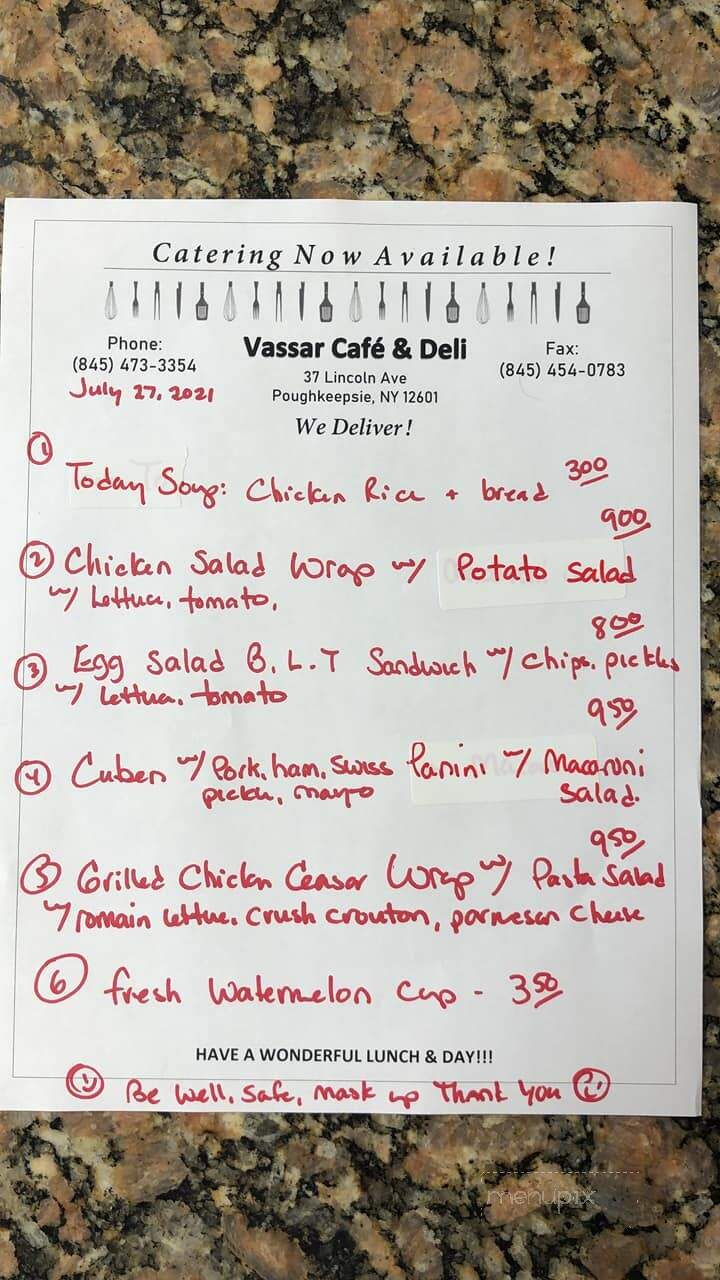 Catering Now Available!
Phone:
(845) 473-3354
Vassar Café & Deli
37 Lincoln Ave
Poughkeepsie, NY 12601
Fax:
(845) 454-0783
July 27, 2021
We Deliver!
① Today Soup: Chicken Rice + bread 300
900
② Chicken Salad Wrap w/ Potato salad
w/ Lettuce, tomato,
800
③ Egg Salad B.L.T Sandwich w/ chips, pickles
w/ lettuce, tomato
950
④ Cuben w/ Pork, ham, Swiss Panini w/ Macaroni
pickle, mayo salad.
950
⑤ Grilled Chicken Ceasar Wrap w/ Pasta Salad
w/ romain lettuce, crush crouton, parmesan cheese
⑥ fresh watermelon cup - 350
HAVE A WONDERFUL LUNCH & DAY!!!
Be well, safe, mask up Thank You
menupix